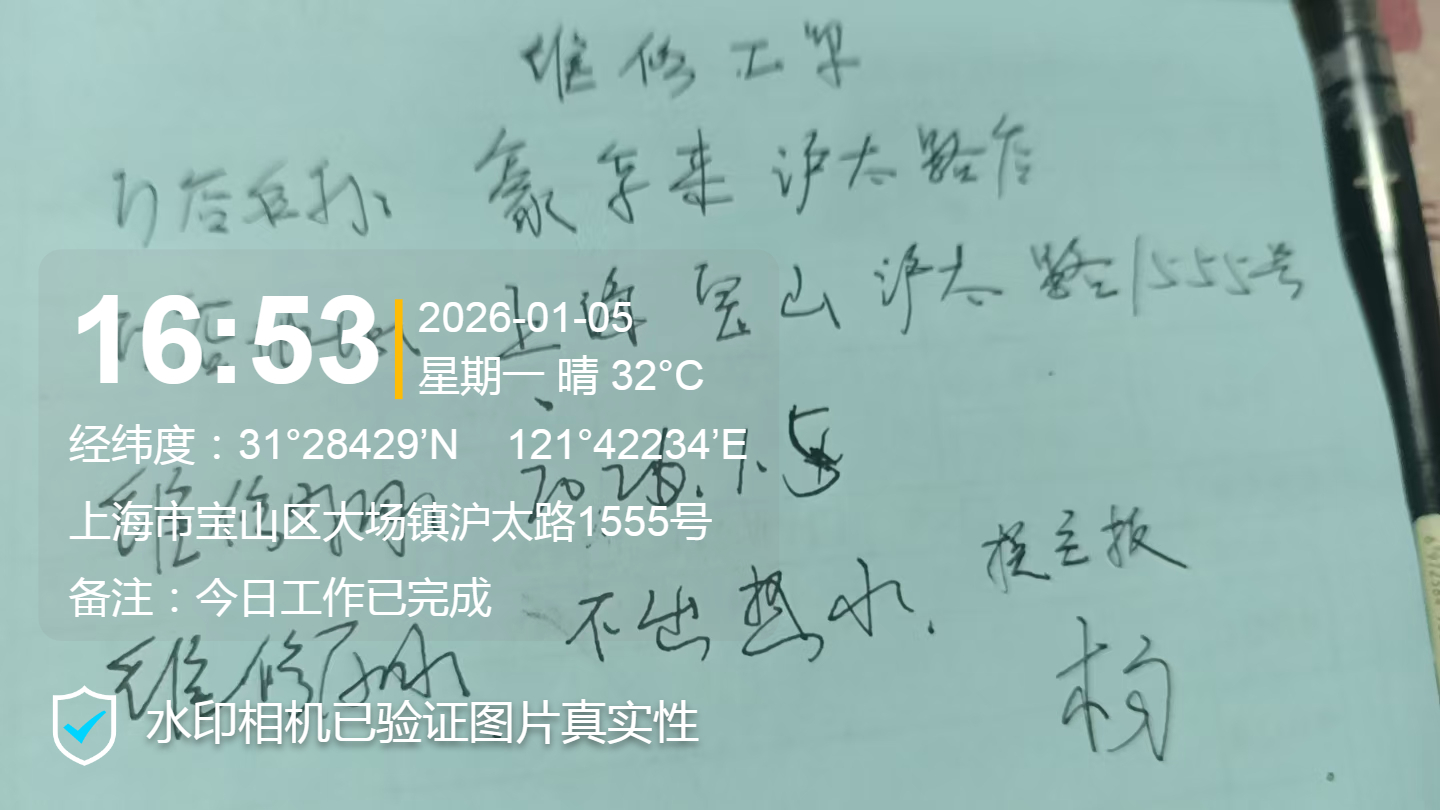 维修工单
门店名称: 豪享来沪太路店
门店地址 上海宝山沪太路1555号
16:53
2026-01-05
星期一 晴 32°C
经纬度：31°28429’N 121°42234’E
维修时间 2026.1.5
上海市宝山区大场镇沪太路1555号
换主板
备注：今日工作已完成
维修原因 不出热水.
杨
水印相机已验证图片真实性